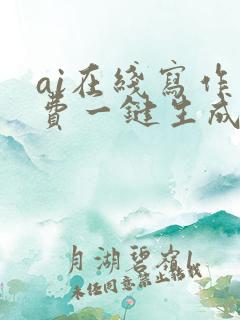 ai在綫寫作
費一鍵生成
月湖碧嶺l
未经同意禁止转载